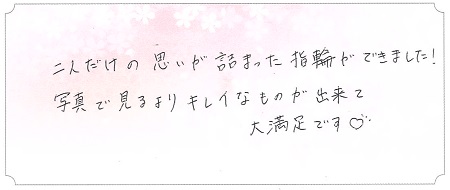 二人だけの思いが詰まった指輪ができました!
写真で見るよりキレイなものが出来て
大満足です♡